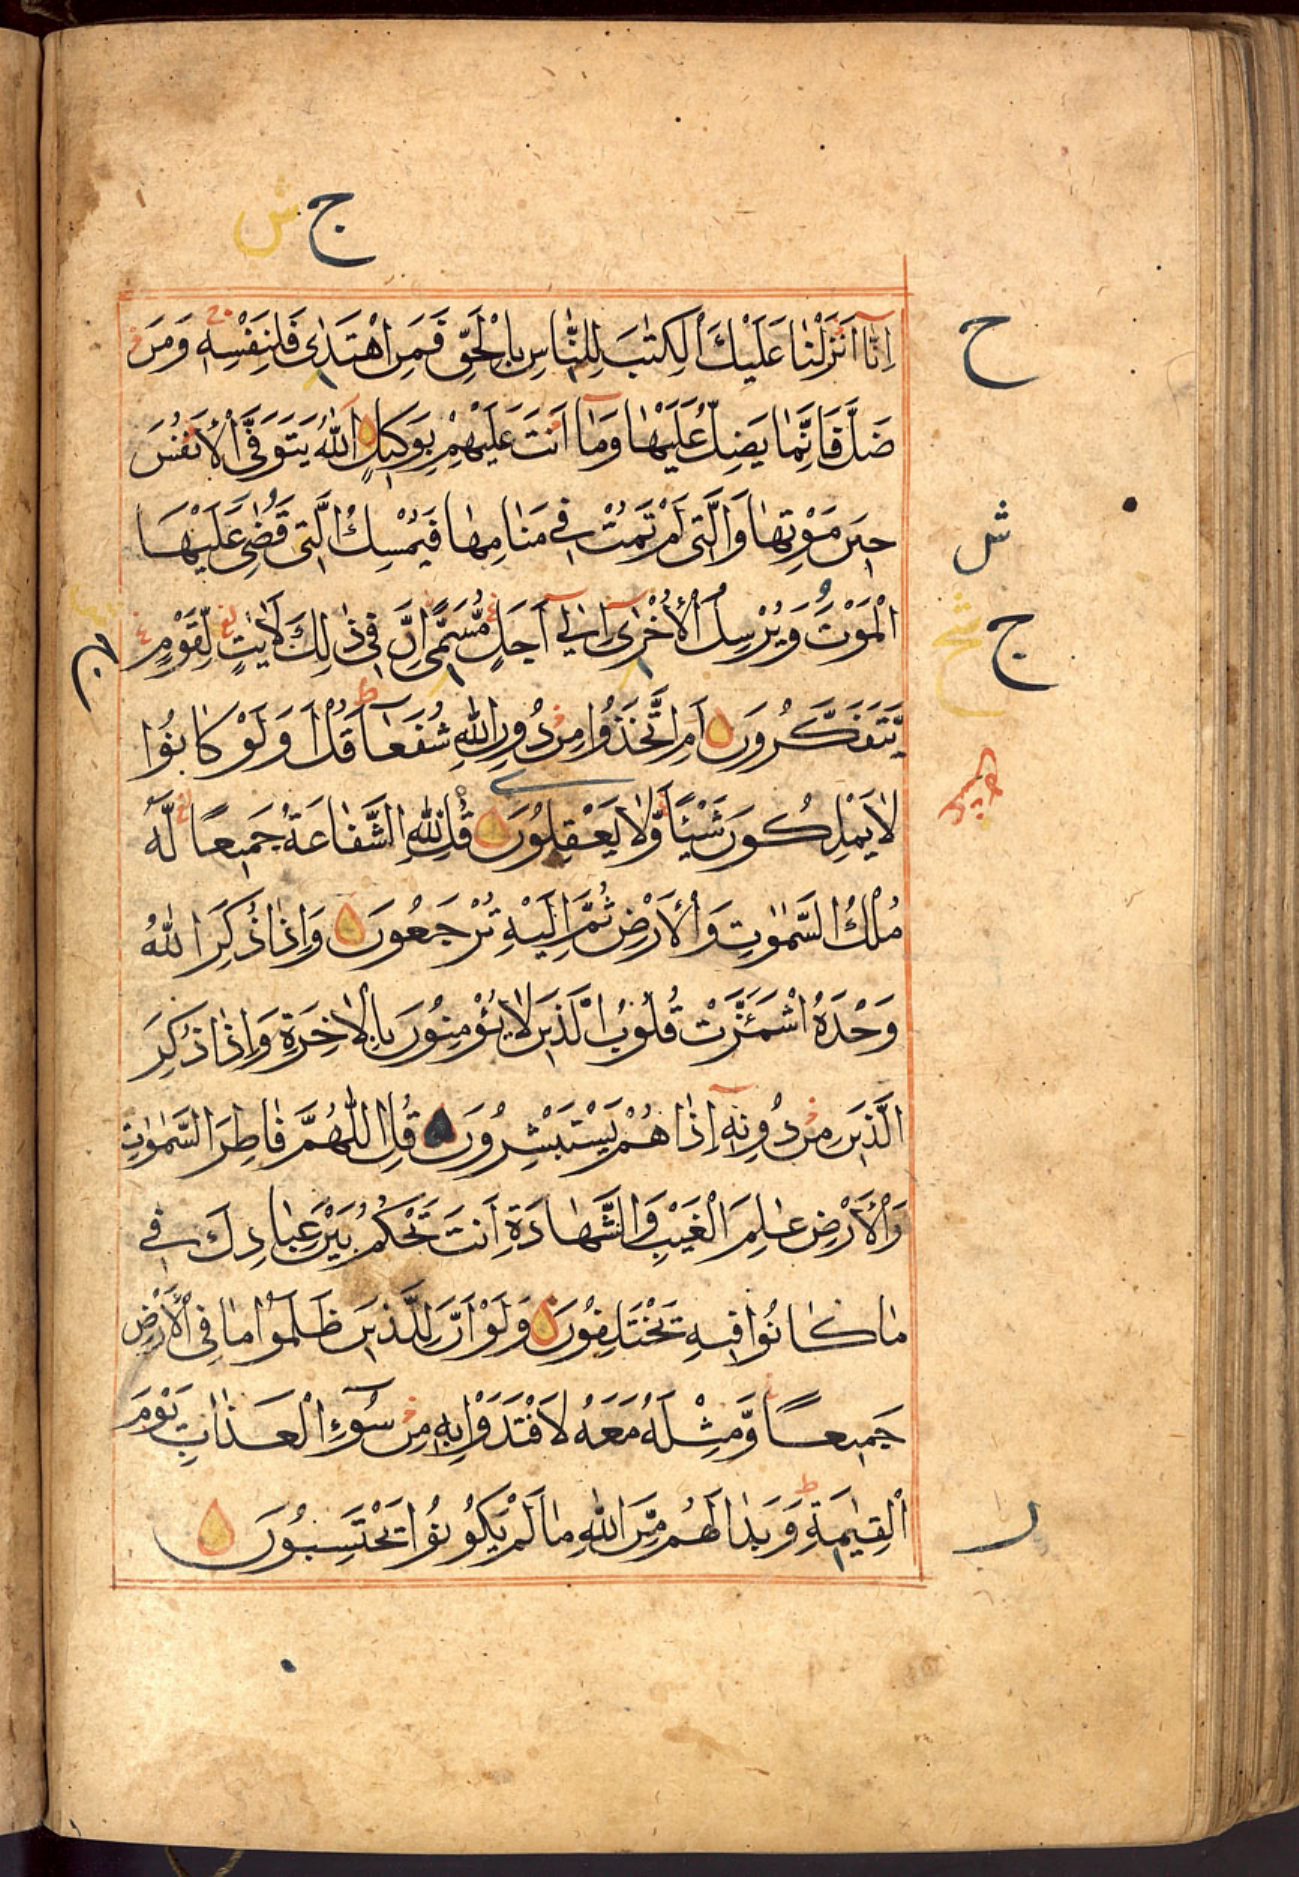 ج ش
اِنَّآ اَنْزَلْنَا عَلَيْكَ الْكِتٰبَ لِلنَّاسِ بِالْحَقِّ فَمَنِ اهْتَدٰى فَلِنَفْسِهٖ وَمَنْ
ح
ضَلَّ فَاِنَّمَا يَضِلُّ عَلَيْهَا وَمَآ اَنْتَ عَلَيْهِمْ بِوَكِيْلٍ اَللّٰهُ يَتَوَفَّى الْاَنْفُسَ
حِيْنَ مَوْتِهَا وَالَّتِىْ لَمْ تَمُتْ فِىْ مَنَامِهَا فَيُمْسِكُ الَّتِىْ قَضٰى عَلَيْهَا
ش
الْمَوْتَ وَيُرْسِلُ الْاُخْرٰىٓ اِلٰىٓ اَجَلٍ مُّسَمًّى اِنَّ فِىْ ذٰلِكَ لَاٰيٰتٍ لِّقَوْمٍ
ج
يَّتَفَكَّرُوْنَ اَمِ اتَّخَذُوْا مِنْ دُوْنِ اللّٰهِ شُفَعَآءَ قُلْ اَوَلَوْ كَانُوْا
لَا يَمْلِكُوْنَ شَيْئًا وَّلَا يَعْقِلُوْنَ قُلْ لِلّٰهِ الشَّفَاعَةُ جَمِيْعًا لَهٗ
مُلْكُ السَّمٰوٰتِ وَالْاَرْضِ ثُمَّ اِلَيْهِ تُرْجَعُوْنَ وَاِذَا ذُكِرَ اللّٰهُ
وَحْدَهُ اشْمَئَزَّتْ قُلُوْبُ الَّذِيْنَ لَا يُؤْمِنُوْنَ بِالْاٰخِرَةِ وَاِذَا ذُكِرَ
الَّذِيْنَ مِنْ دُوْنِهٖٓ اِذَا هُمْ يَسْتَبْشِرُوْنَ قُلِ اللّٰهُمَّ فَاطِرَ السَّمٰوٰتِ
وَالْاَرْضِ عٰلِمَ الْغَيْبِ وَالشَّهَادَةِ اَنْتَ تَحْكُمُ بَيْنَ عِبَادِكَ فِىْ
مَا كَانُوْا فِيْهِ يَخْتَلِفُوْنَ وَلَوْ اَنَّ لِلَّذِيْنَ ظَلَمُوْا مَا فِى الْاَرْضِ
جَمِيْعًا وَّمِثْلَهٗ مَعَهٗ لَافْتَدَوْا بِهٖ مِنْ سُوْٓءِ الْعَذَابِ يَوْمَ
الْقِيٰمَةِ وَبَدَا لَهُمْ مِّنَ اللّٰهِ مَا لَمْ يَكُوْنُوْا يَحْتَسِبُوْنَ
ر